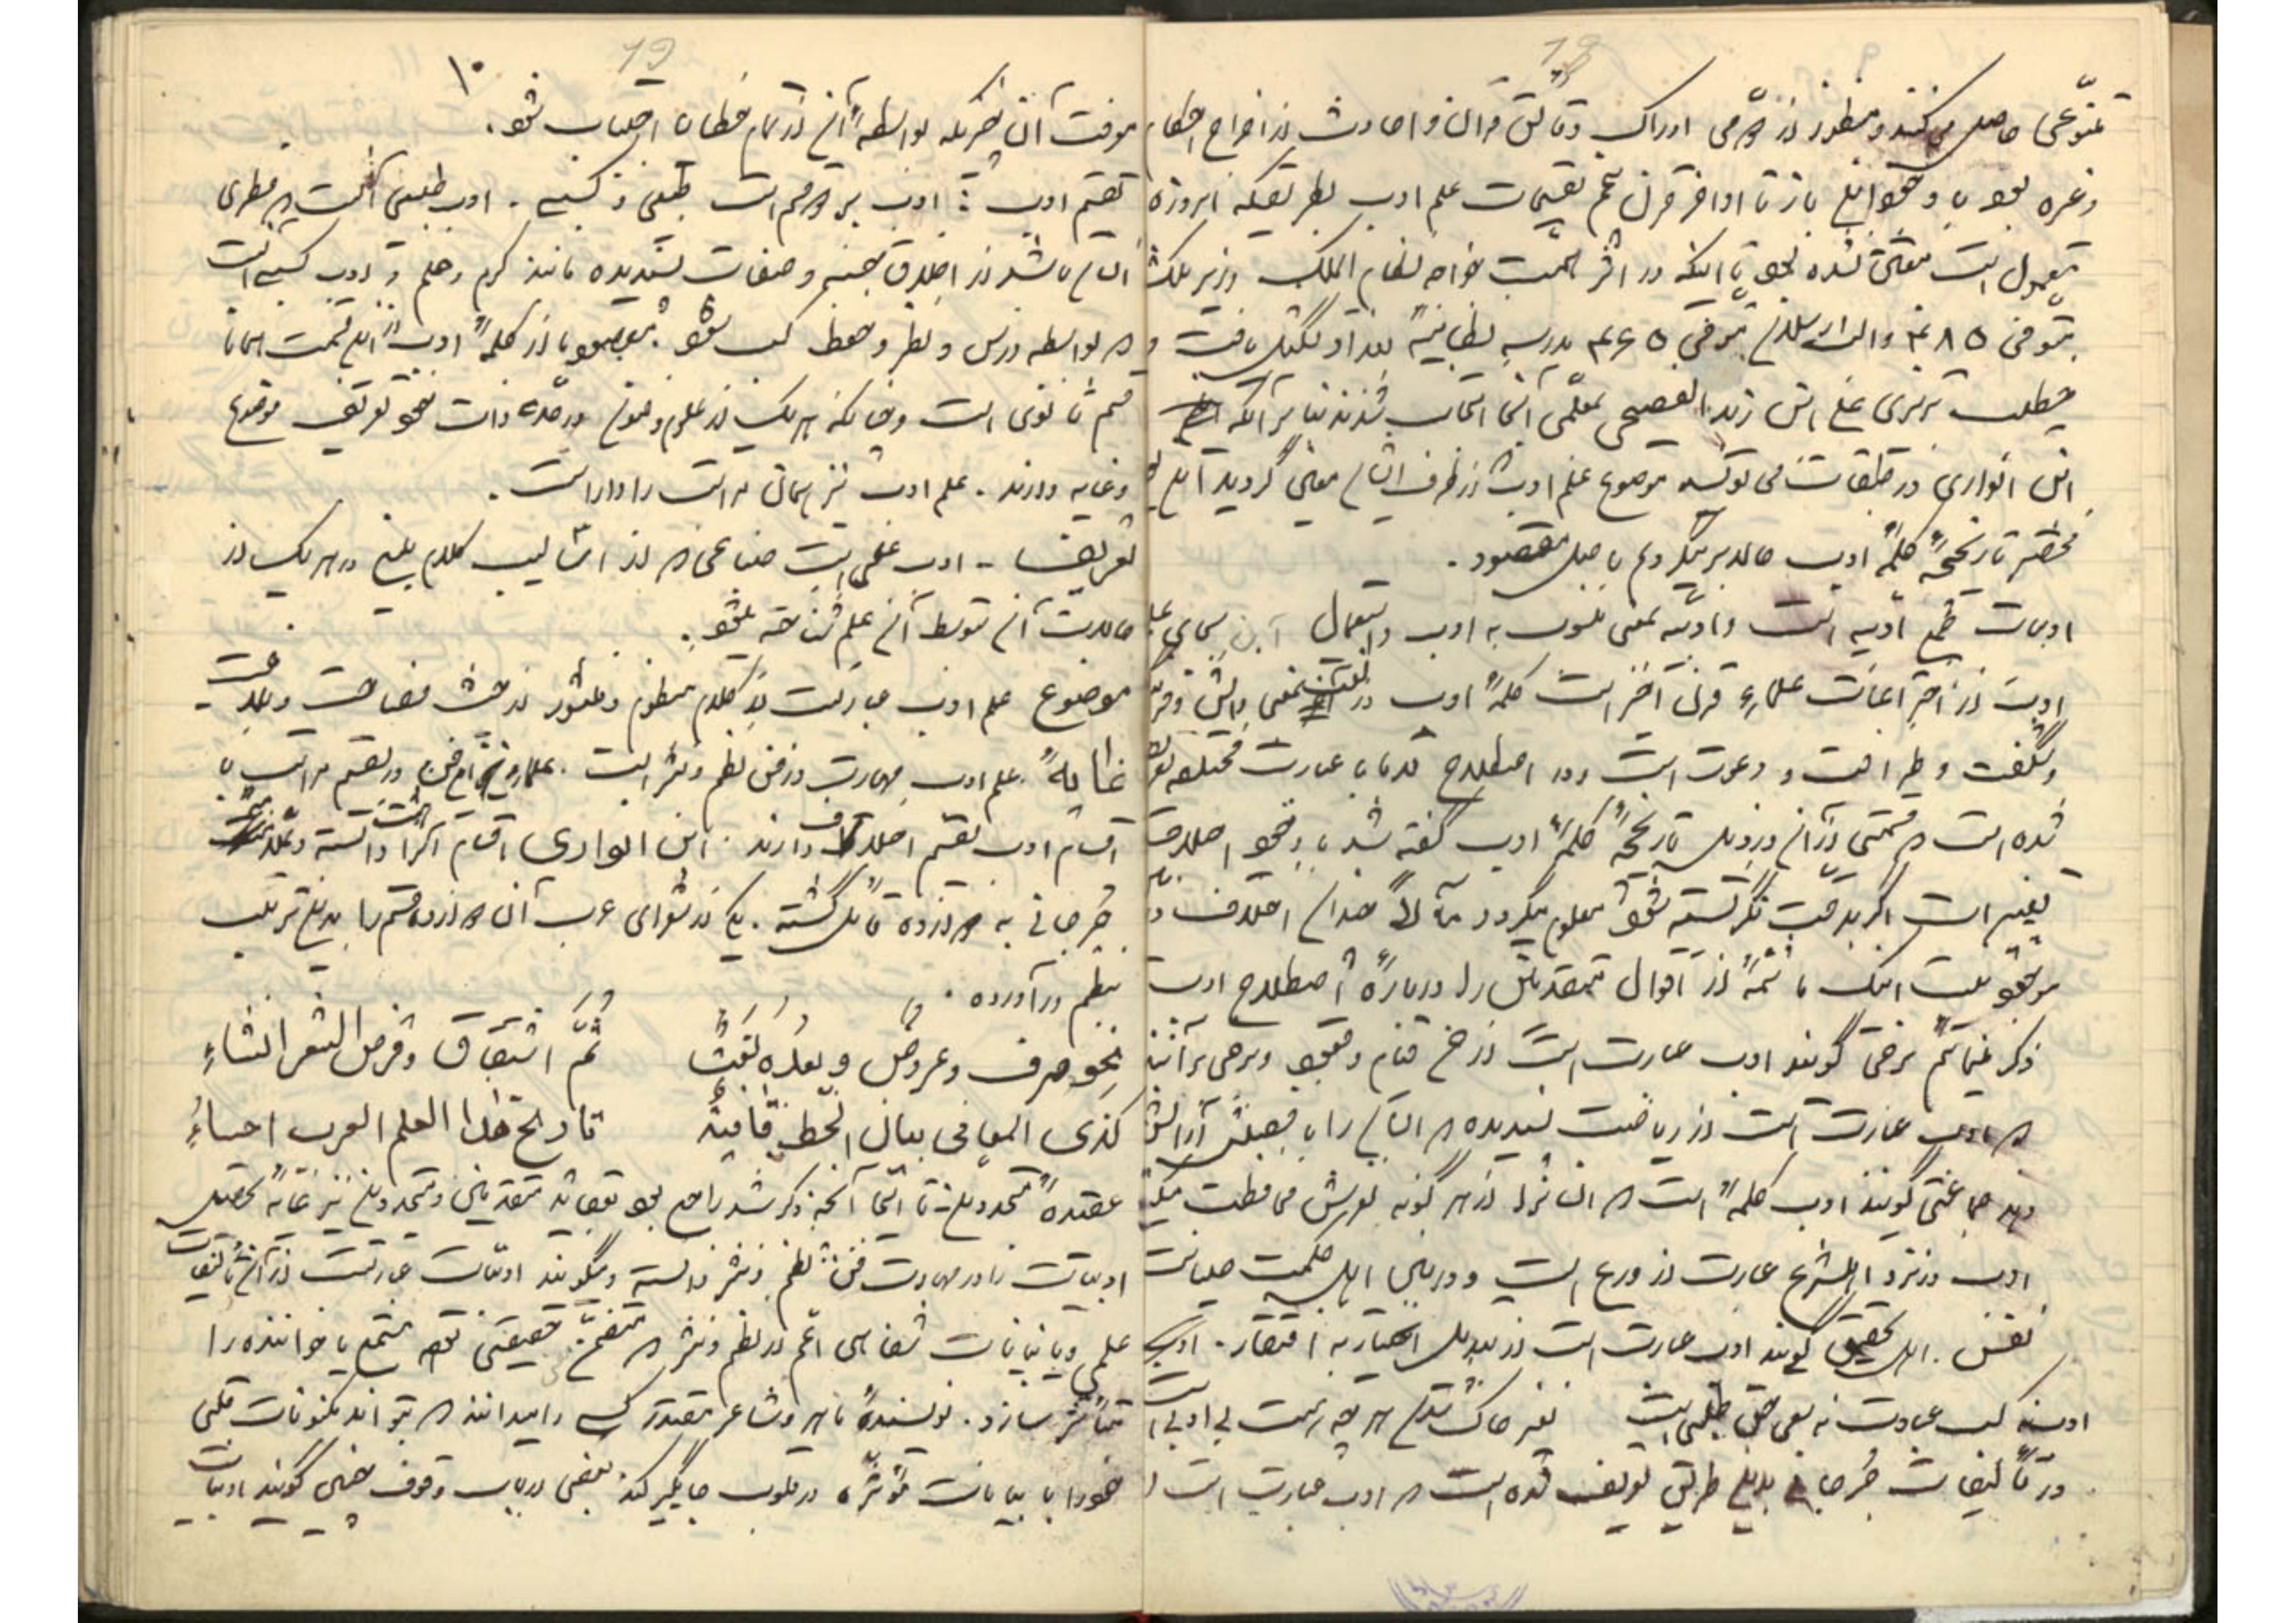 تنوّعی حاصل می‌کنند و منظور از آن ادراک دقائق قرآن و احادیث از اخراج احکام
وغیره بود با وجود این باز تا اواخر قرن پنجم تقسیمات علم ادب بطریقیکه امروزه
معمول است معیّن نشده بود تا اینکه در اثر همّت خواجه نظام الملک وزیر ملکشاه
متوفی ۴۸۵ و الب ارسلان متوفی ۴۶۵ مدرسه نظامیّه بغداد تشکیل یافت و
خطیب تبریزی علی ابن زید الفصیحی بمعلّمی آنجا انتخاب شدند بنا بر آنکه
ابن انباری در طبقات می‌نویسد موضوع علم ادب از طرف ایشان معیّن گردید این
مختصر تاریخچهٔ کلمهٔ ادب حالا بر میگردیم باصل مقصود.
ادبیات جمع ادبیه است و ادبیه بمعنی منسوب به ادب و استعمال آن بجای علم
ادب از اختراعات علماء قرن آخر است کلمهٔ ادب در لغت بمعنی دانش و فرهنگ
و شگفت و ظرافت و دعوت است و در اصطلاح قدما با عبارت مختلفه تعریف
شده است که قسمتی از آن در ذیل تاریخچهٔ کلمهٔ ادب گفته شد با وجود اختلاف
تعبیر است اگر بدقّت نگریسته شود معلوم میگردد مآلاً چندان اختلاف در
موجود نیست اینک ما شمّهٔ از اقوال متقدمین را در بارهٔ اصطلاح ادب
ذکر مینمائیم برخی گویند ادب عبارت است از قیام و قعود و برخی بر آنند
که ادب عبارت است از ریاضت پسندیده که انسان را با فضیلتی آرایش
دهد جماعتی گویند ادب کلمهٔ است که انسانرا از هر گونه لغزش محافظت میکند
ادب در نزد اهل شرع عبارت از ورع است و در بین اهل حکمت صیانت
نفس. اهل تحقیق گویند ادب عبارت است از تبدیل اختیار به افتقار. ادیب
ادب نه کسب عبادت نه سعی حق طلبی است    بغیر خاک شدن هر چه هست بی ادبی است
در تألیفات جُرجانی بدین طریق تعریف شده است که ادب عبارت است از
۱۰
معرفت آن چیزیکه بواسطهٔ آن از تمام خطاها اجتناب شود.
تقسیم ادب: ادب بر دو قسم است طبیعی و کسبی. ادب طبیعی آنست که فطری
انسان باشد از اخلاق حسنه و صفات پسندیده مانند کرم و حلم و ادب کسبی آنست
که بواسطه درس و نظر و حفظ کسب شود مقصود ما از کلمهٔ ادب در این قسمت همانا
قسم ثانوی است و چنانکه هر یک از علوم و فنون در حدّ ذات خود تعریف موضوع
و غایه دارند. علم ادب نیز همان مراتب را دارا است.
تعریف - ادب علمی است صناعی که از اسالیب کلام بلیغ در هر یک از
حالات آن توسط آن علم شناخته میشود.
موضوع علم ادب عبارتست از کلام منظوم و منثور از حیث فصاحت و بلاغت -
غایهٔ علم ادب مهارت در فن نظم و نثر است. علماء این فن در تقسیم مراتب یا
اقسام ادب تقسیم اختلاف دارند. ابن الواری اقسام آنرا هشت دانسته و علّامه
جُرجانی به دوازده قائل گشته. یکی از شعرای عرب آن دوازده قسم را بدین ترتیب
بنظم در آورده.
نحو صرف وعروض و بعدُه لُغَتٌ    ثُمَّ اشتقاق وقرض الشعر انشاءِ
کذی المعانی بیان الخط قافیةٌ    تاریخ هذا العلم العرب احصاءُ
عقیدهٔ متجددین - تا اینجا آنچه ذکر شد راجع بود بعقائد متقدمین و متجددین نیز غایهٔ تحصیل
ادبیات را در مهارت فن نظم و نثر دانسته و میگویند ادبیّات عبارتست از آن تألیفات
علمی و یا بیانات شفاهی اعم در نظم و نثر که متضمّن حقیقتی بوده مستمع یا خواننده را
متأثر سازد. نویسندهٔ ماهر و شاعر مقتدر کسی را میدانند که بتواند مکنونات قلبی
خود را با بیانات مؤثره در قلوب جایگیر کند بعضی ارباب وقوف چنین گویند ادبیات